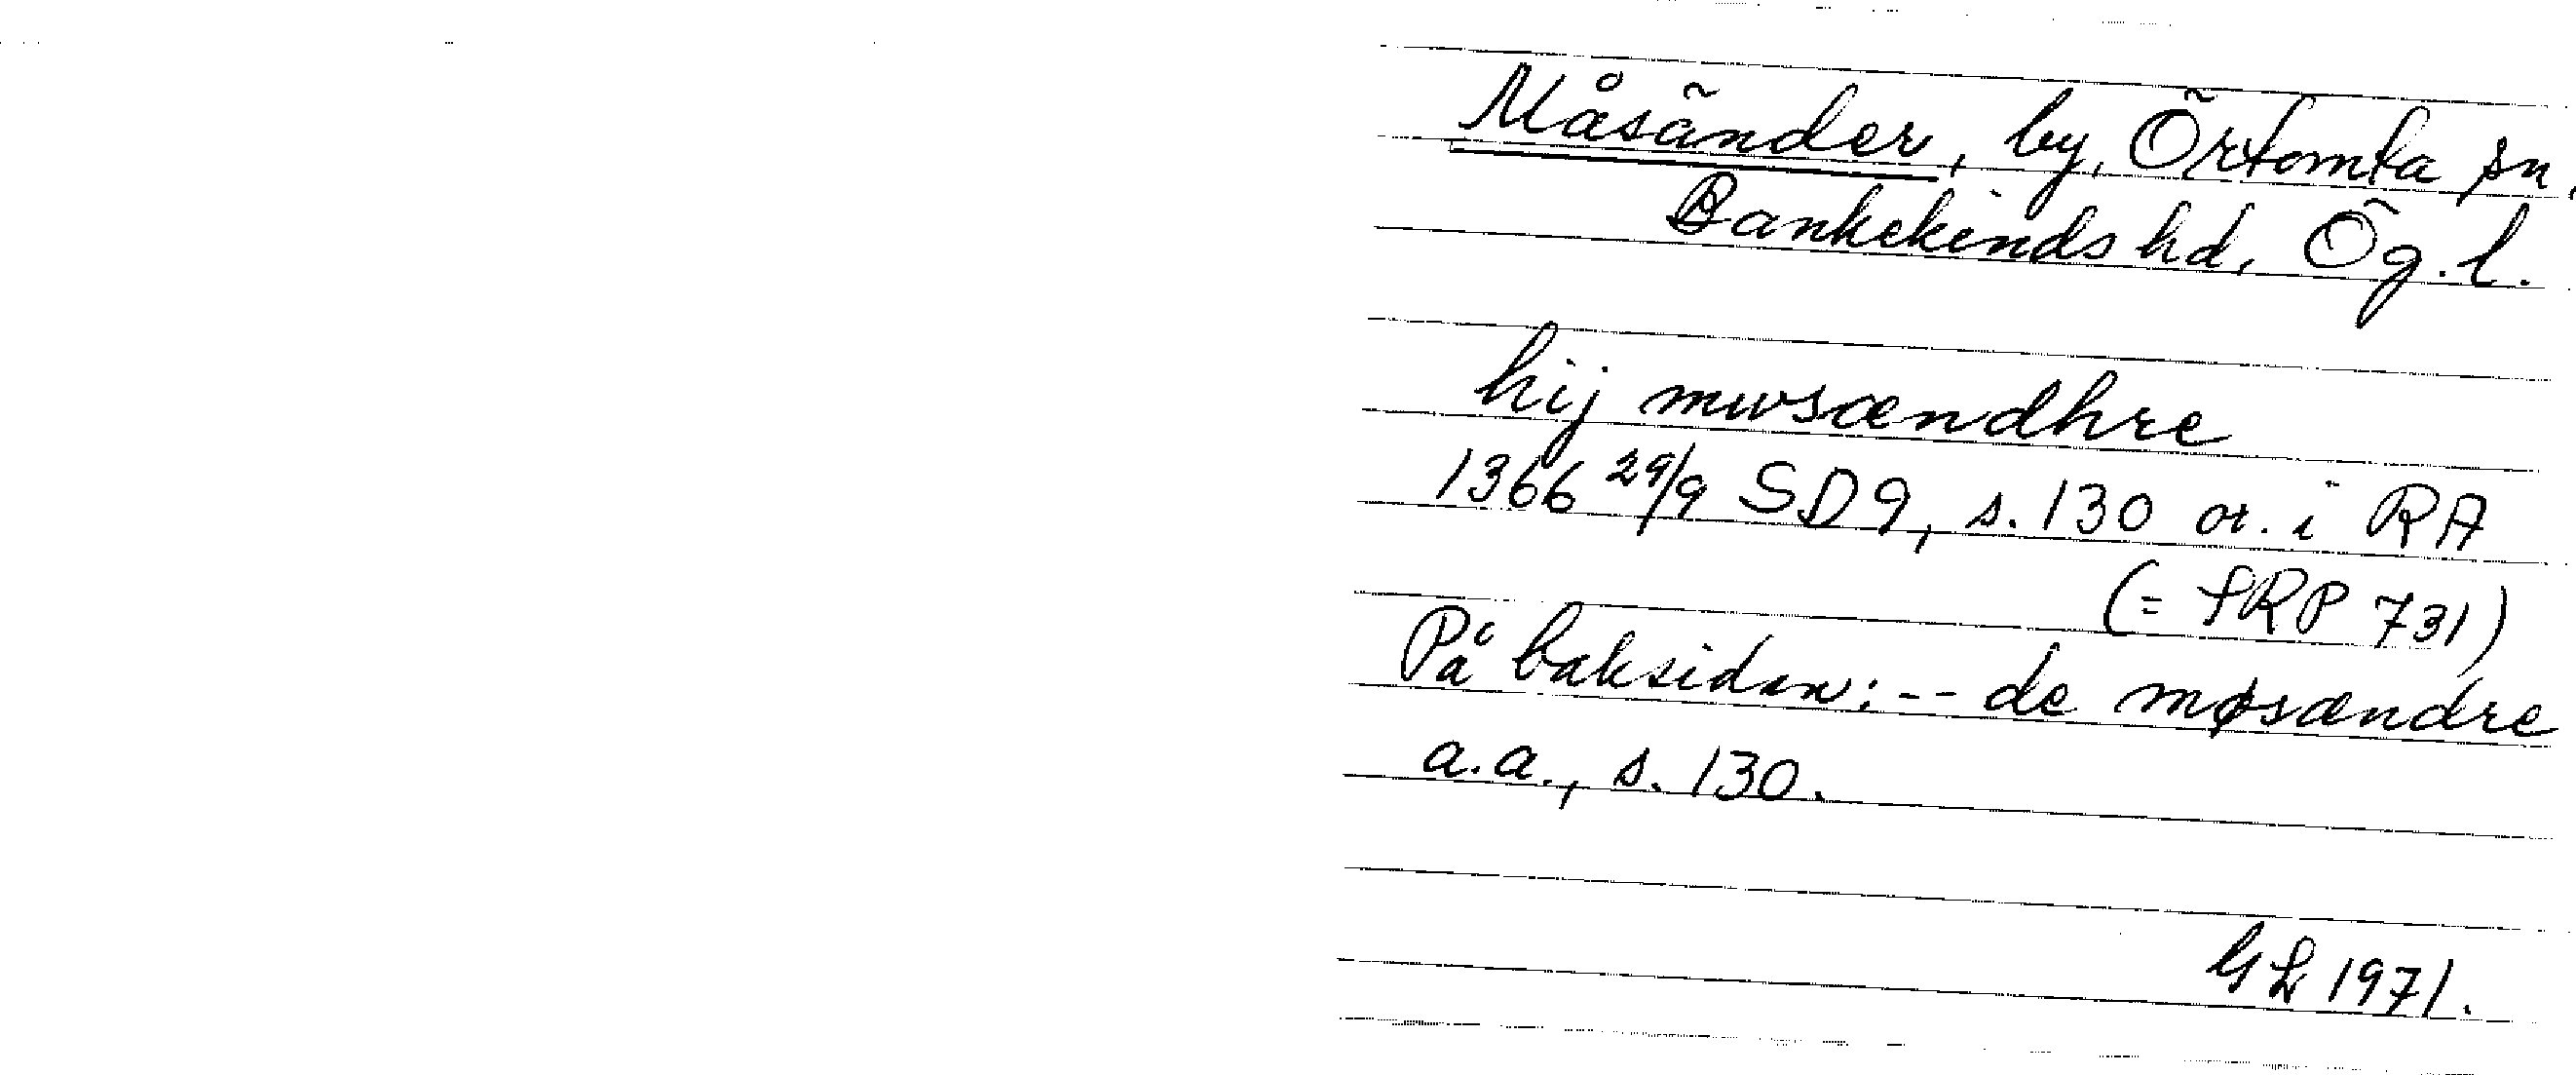 Måsänder, by, Örtomta sn,
Bankekinds hd, Ög. l.
hij mwsændhre
1366 29/9 SD 9, s. 130 or. i RA
(= SRP 731)
På baksidan: -- de møsændre
a.a., s. 130.
GL 1971.